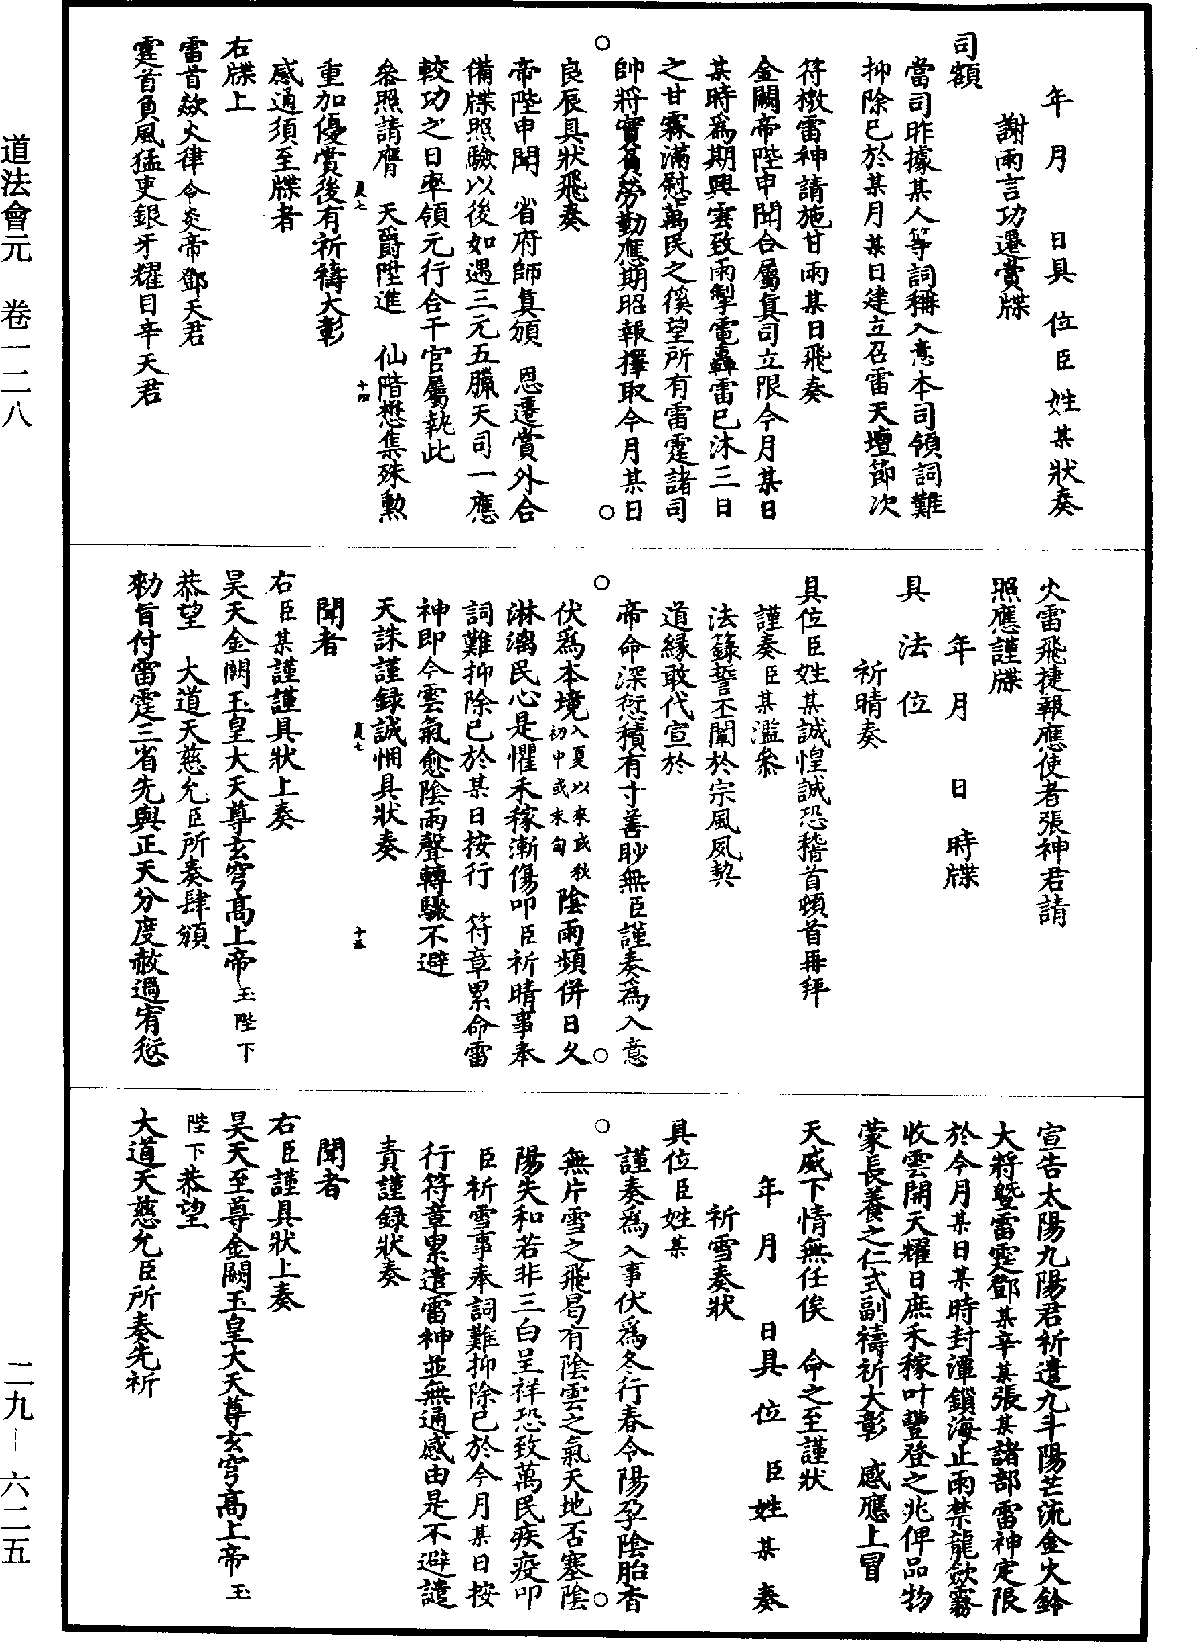 年 月 日具 位 臣 姓 某 狀奏
謝雨言功遷賞牒
司額
當司昨據某人等詞稱入意本司領詞難
抑除已於某月某日建立召雷天壇節次
符檄雷神請施甘雨某日飛奏
金闕帝陛申聞合屬真司立限今月某日
某時為期興雲致雨掣電轟雷已沐三日
之甘霖滿慰萬民之徯望所有雷霆諸司
帥將實負勞勤應期昭報擇取今月某日
良辰具狀飛奏
帝陛申聞 省府師真頒 恩遷賞外合
備牒照驗以後如遇三元五臘天司一應
較功之日率領元行合干官屬執此
叅照請膺 天爵陞進 仙階懋集殊勲
重加優賞後有祈禱大彰
感通須至牒者
右牒上
雷首歘火律令炎帝鄧天君
霆首負風猛吏銀牙耀目辛天君
夏七 十四
火雷飛捷報應使者張神君請
照應謹牒
年 月 日 時牒
具 法 位
祈晴奏
具位臣姓某誠惶誠恐稽首頓首再拜
謹奏臣某濫叅
法籙誓丕闡於宗風夙契
道緣敢代宣於
帝命深愆積有寸善眇無臣謹奏為入意
伏為本境入夏以來或秋初中或末旬陰雨頻併日久
淋漓民心是懼禾稼漸傷叩臣祈晴事奉
詞難抑除已於某日按行 符章累命雷
神即今雲氣愈陰雨聲轉驟不避
天誅謹録誠悃具狀奏
聞者
右臣某謹謹具狀上奏
昊天金闕玉皇大天尊玄穹高上帝玉陛下
恭望 大道天慈允臣所奏肆頒
勑旨付雷霆三省先與正天分度赦過宥愆
夏七 十五
宣告太陽九陽君祈遣九斗陽芒流金火鈴
大將曁雷霆鄧某辛某張某諸部雷神定限
於今月某日某時封潭鎖海止雨禁龍歛霧
收雲開天耀日庶禾稼叶豐登之兆俾品物
蒙長養之仁式副禱祈大彰 感應上冒
天威下情無任俟 命之至謹狀
年 月 日具 位 臣 姓 某 奏
祈雪奏狀
具位臣姓某
謹奏為入事伏為冬行春令陽孕陰胎杳
無片雪之飛曷有陰雲之氣天地否塞陰
陽失和若非三白呈祥恐致萬民疾疫叩
臣祈雪事奉詞難抑除已於今月某日按
行符章累遣雷神並無通感由是不避譴
責謹録狀奏
聞者
右臣謹具狀上奏
昊天至尊金闕玉皇大天尊玄穹高上帝玉
陛下恭望
大道天慈允臣所奏先祈
道法會元 卷一二八
二九—六二五